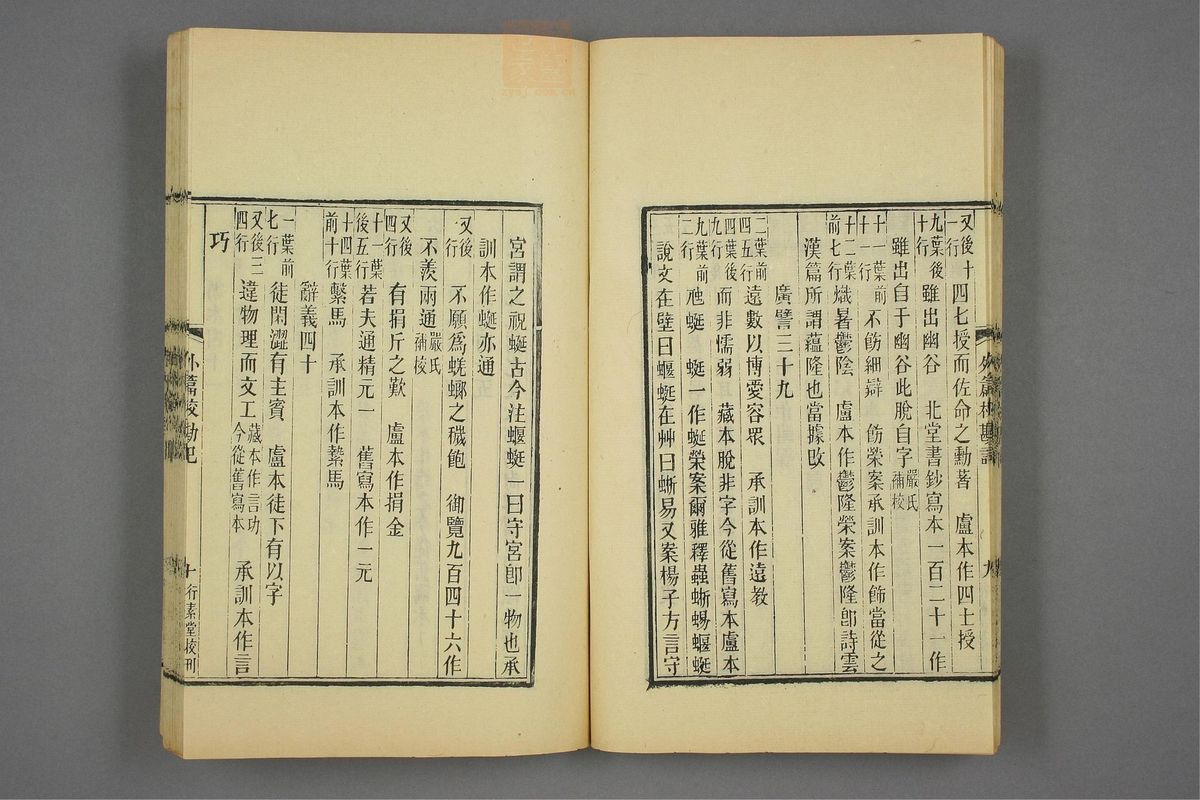 又後十一行 四七授而佐命之勳著 盧本作四士授
九葉後十行 雖出幽谷 北堂書鈔寫本一百二十一作
雖出自于幽谷此脫自字 嚴氏補校
十一葉前十一行 不飭細辯 飭榮案承訓本作飾當從之
十二葉前七行 熾暑鬱陰 盧本作鬱隆榮案鬱隆卽詩雲
漢篇所謂蘊隆也當據改
廣譬三十九
二葉前四五行 遠數以博愛容眾 承訓本作遠教
四葉後九行 而非懦弱 藏本脫非字今從舊寫本盧本
九葉前二行 虵蜓 蜓一作蜒榮案爾雅釋蟲蜥蜴蝘蜓
說文在壁曰蝘蜓在艸曰蜥易又案楊子方言守
外篇校勘記 九
宮謂之祝蜓古今注蝘蜓一曰守宮卽一物也承
訓本作蜒亦通
又後一行 不願爲蜣蜋之穢飽 御覽九百四十六作
不羨兩通 嚴氏補校
又後四行 有捐斤之歎 盧本作捐金
十一葉後五行 若夫通精元一 舊寫本作一元
十四葉前十行 繫馬 承訓本作縶馬
辭義四十
一葉前七行 徒閑澀有主賓 盧本徒下有以字
又後三四行 違物理而文工 藏本作言功今從舊寫本 承訓本作言
巧
外篇校勘記 十 行素堂校刊